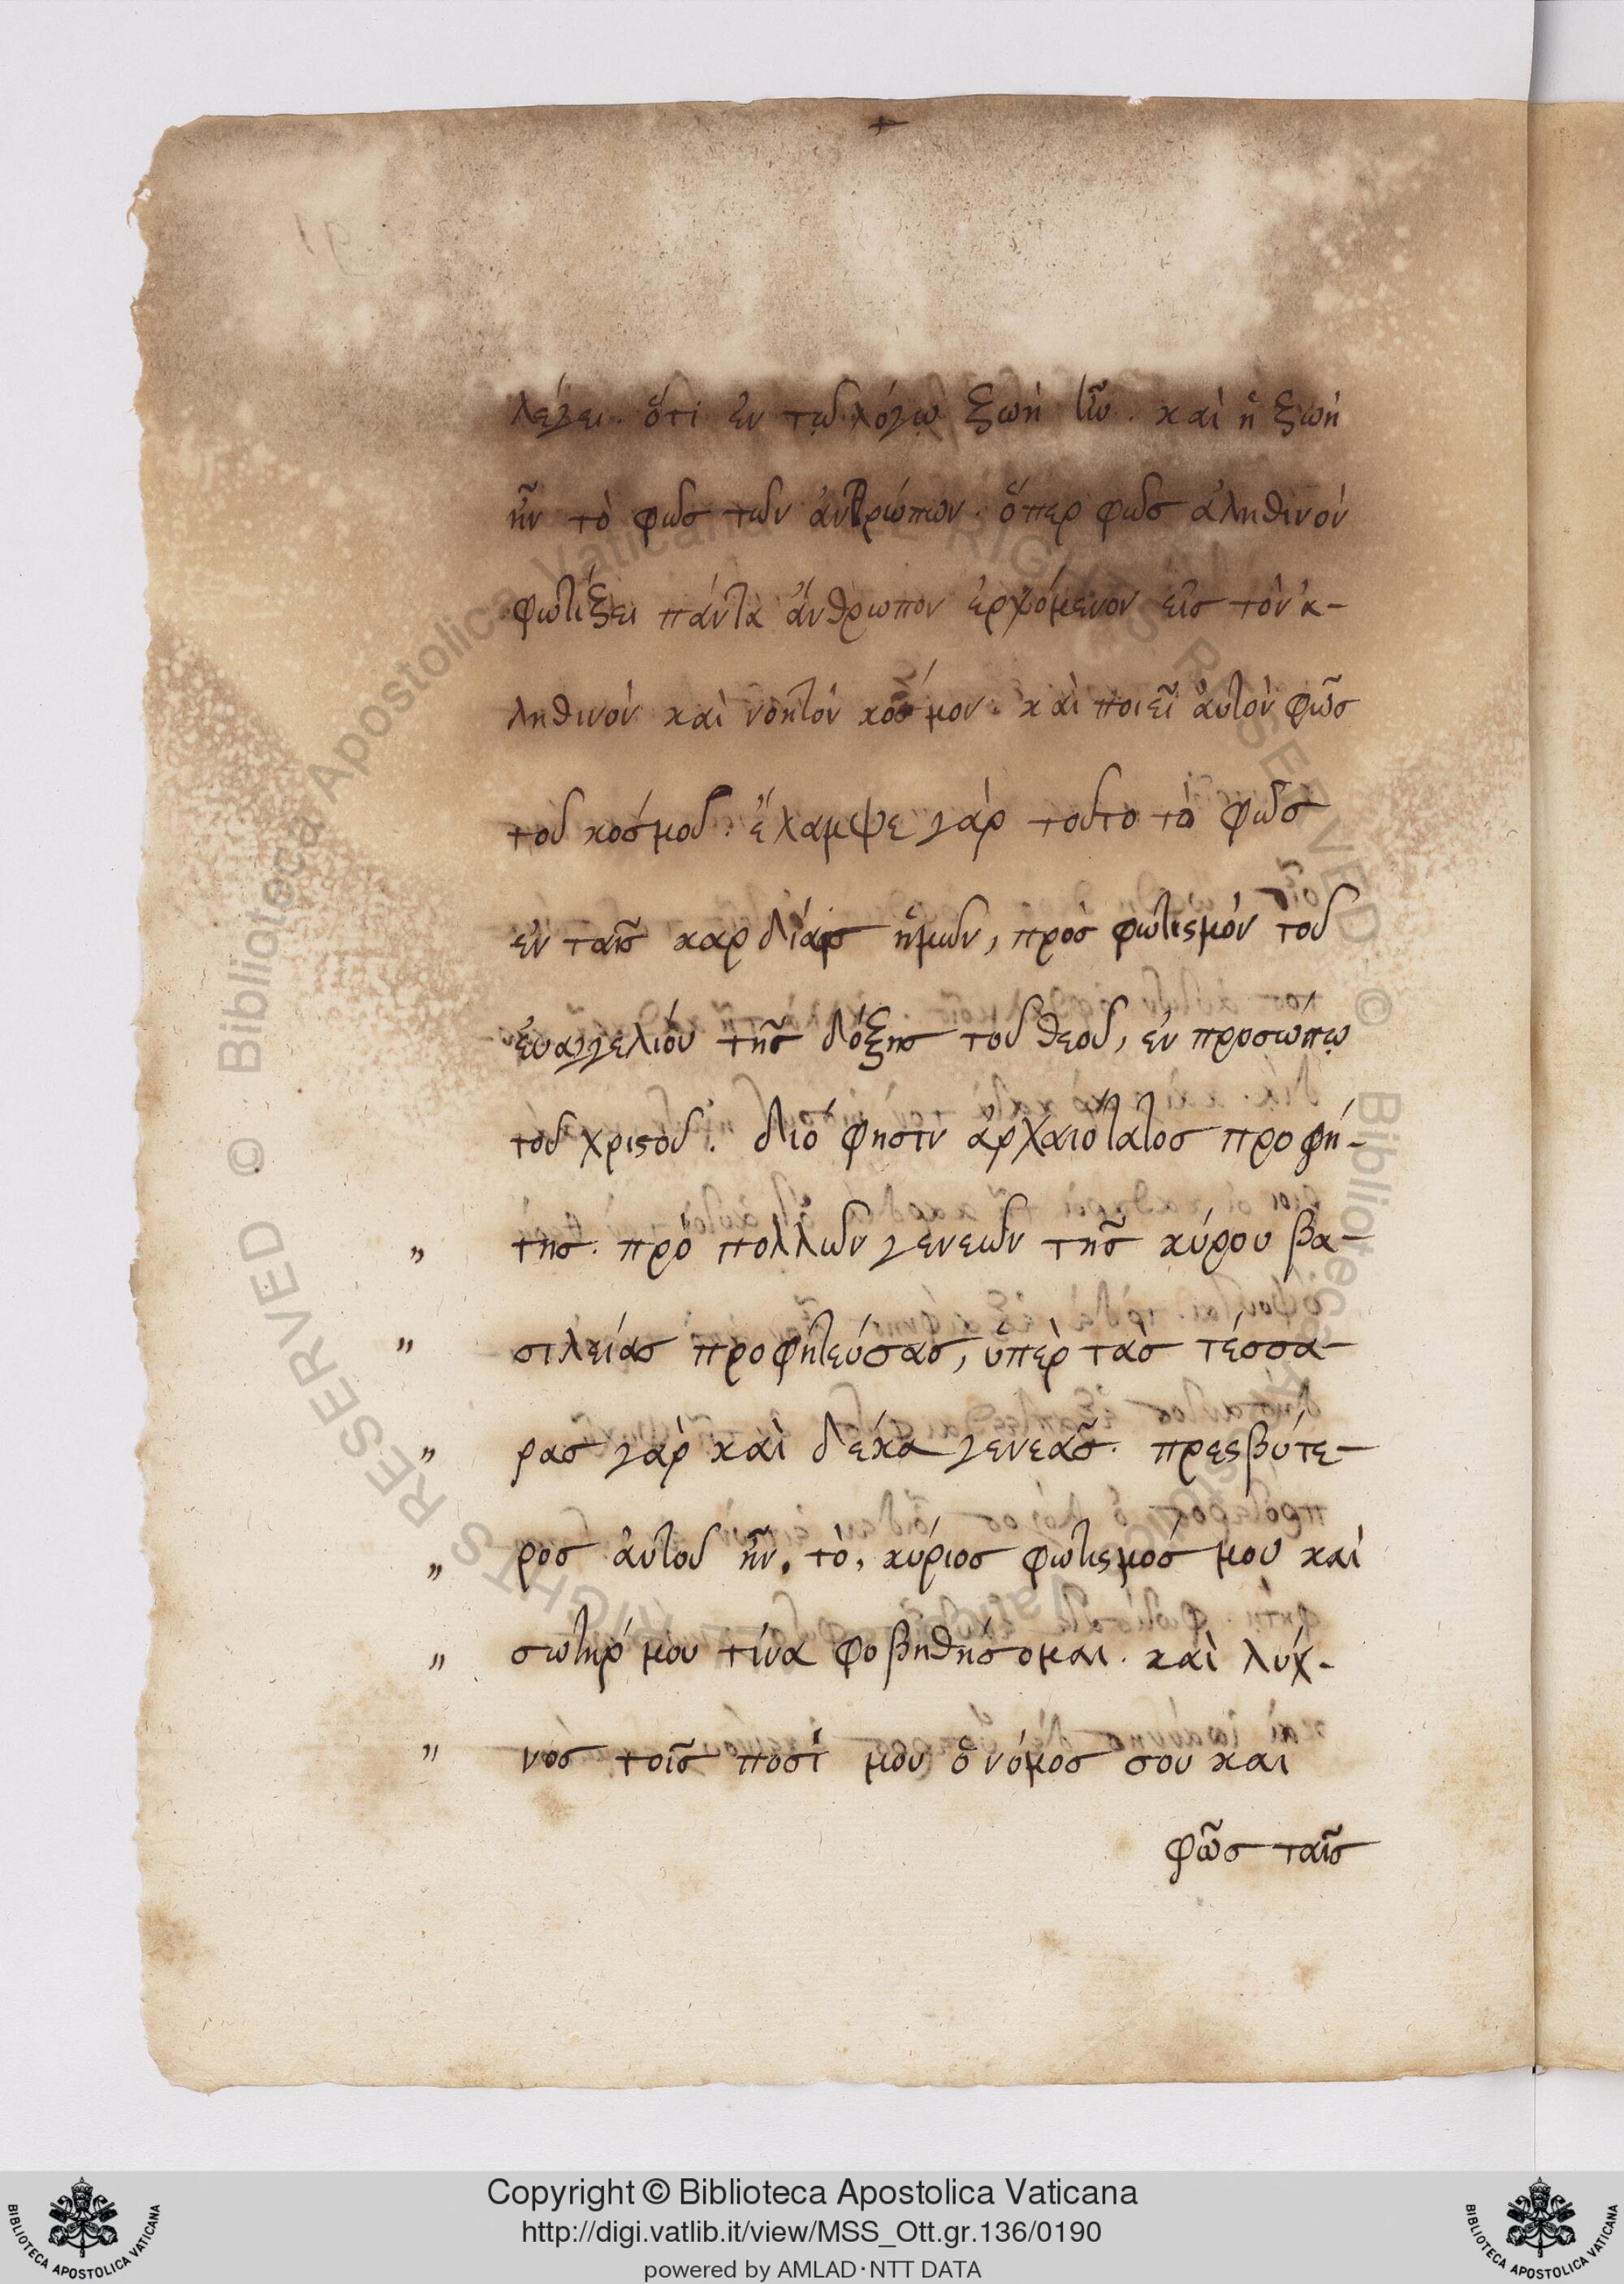 λέγει. ὅτι ἐν τῷ λόγῳ ζωὴ ἦν. καὶ ἡ ζωὴ
ἦν τὸ φῶσ τῶν ἀνθρώπων. ὅπερ φῶσ ἀληθινὸν
φωτίζει πάντα ἄνθρωπον ἐρχόμενον εἰσ τὸν ἀ-
ληθινὸν καὶ νοητὸν κόσμον. καὶ ποιεῖ ἀυτὸν φῶσ
τοῦ κόσμοῦ. ἔλαμψε γὰρ τοῦτο τὸ φῶσ
ἐν ταῖσ καρδίαισ ἡμῶν, πρὸσ φωτιςμὸν τοῦ
ἐυαγγελίου τῆσ δόξησ τοῦ θεοῦ, ἐν προσώπῳ
τοῦ χριςοῦ. διό φησιν ἀρχαιότατοσ προφή-
" τησ. πρὸ πολλῶν γενεῶν τῆσ κύρου βα-
" σιλείασ προφητεύσασ, ὑπὲρ τὰσ τέσσα-
" ρασ γὰρ καὶ δέκα γενεᾶσ. πρεςβύτε-
" ροσ ἀυτοῦ ἦν, τό, κύριοσ φωτιςμόσ μου καὶ
" σωτήρ μου τίνα φοβηθήσομαι. καὶ λύχ-
" νοσ τοῖσ ποσί μου ὁ νόμοσ σου καὶ
φῶσ ταῖσ
Copyright © Biblioteca Apostolica Vaticana
http://digi.vatlib.it/view/MSS_Ott.gr.136/0190
powered by AMLAD·NTT DATA
BIBLIOTECA APOSTOLICA VATICANA
BIBLIOTECA APOSTOLICA VATICANA